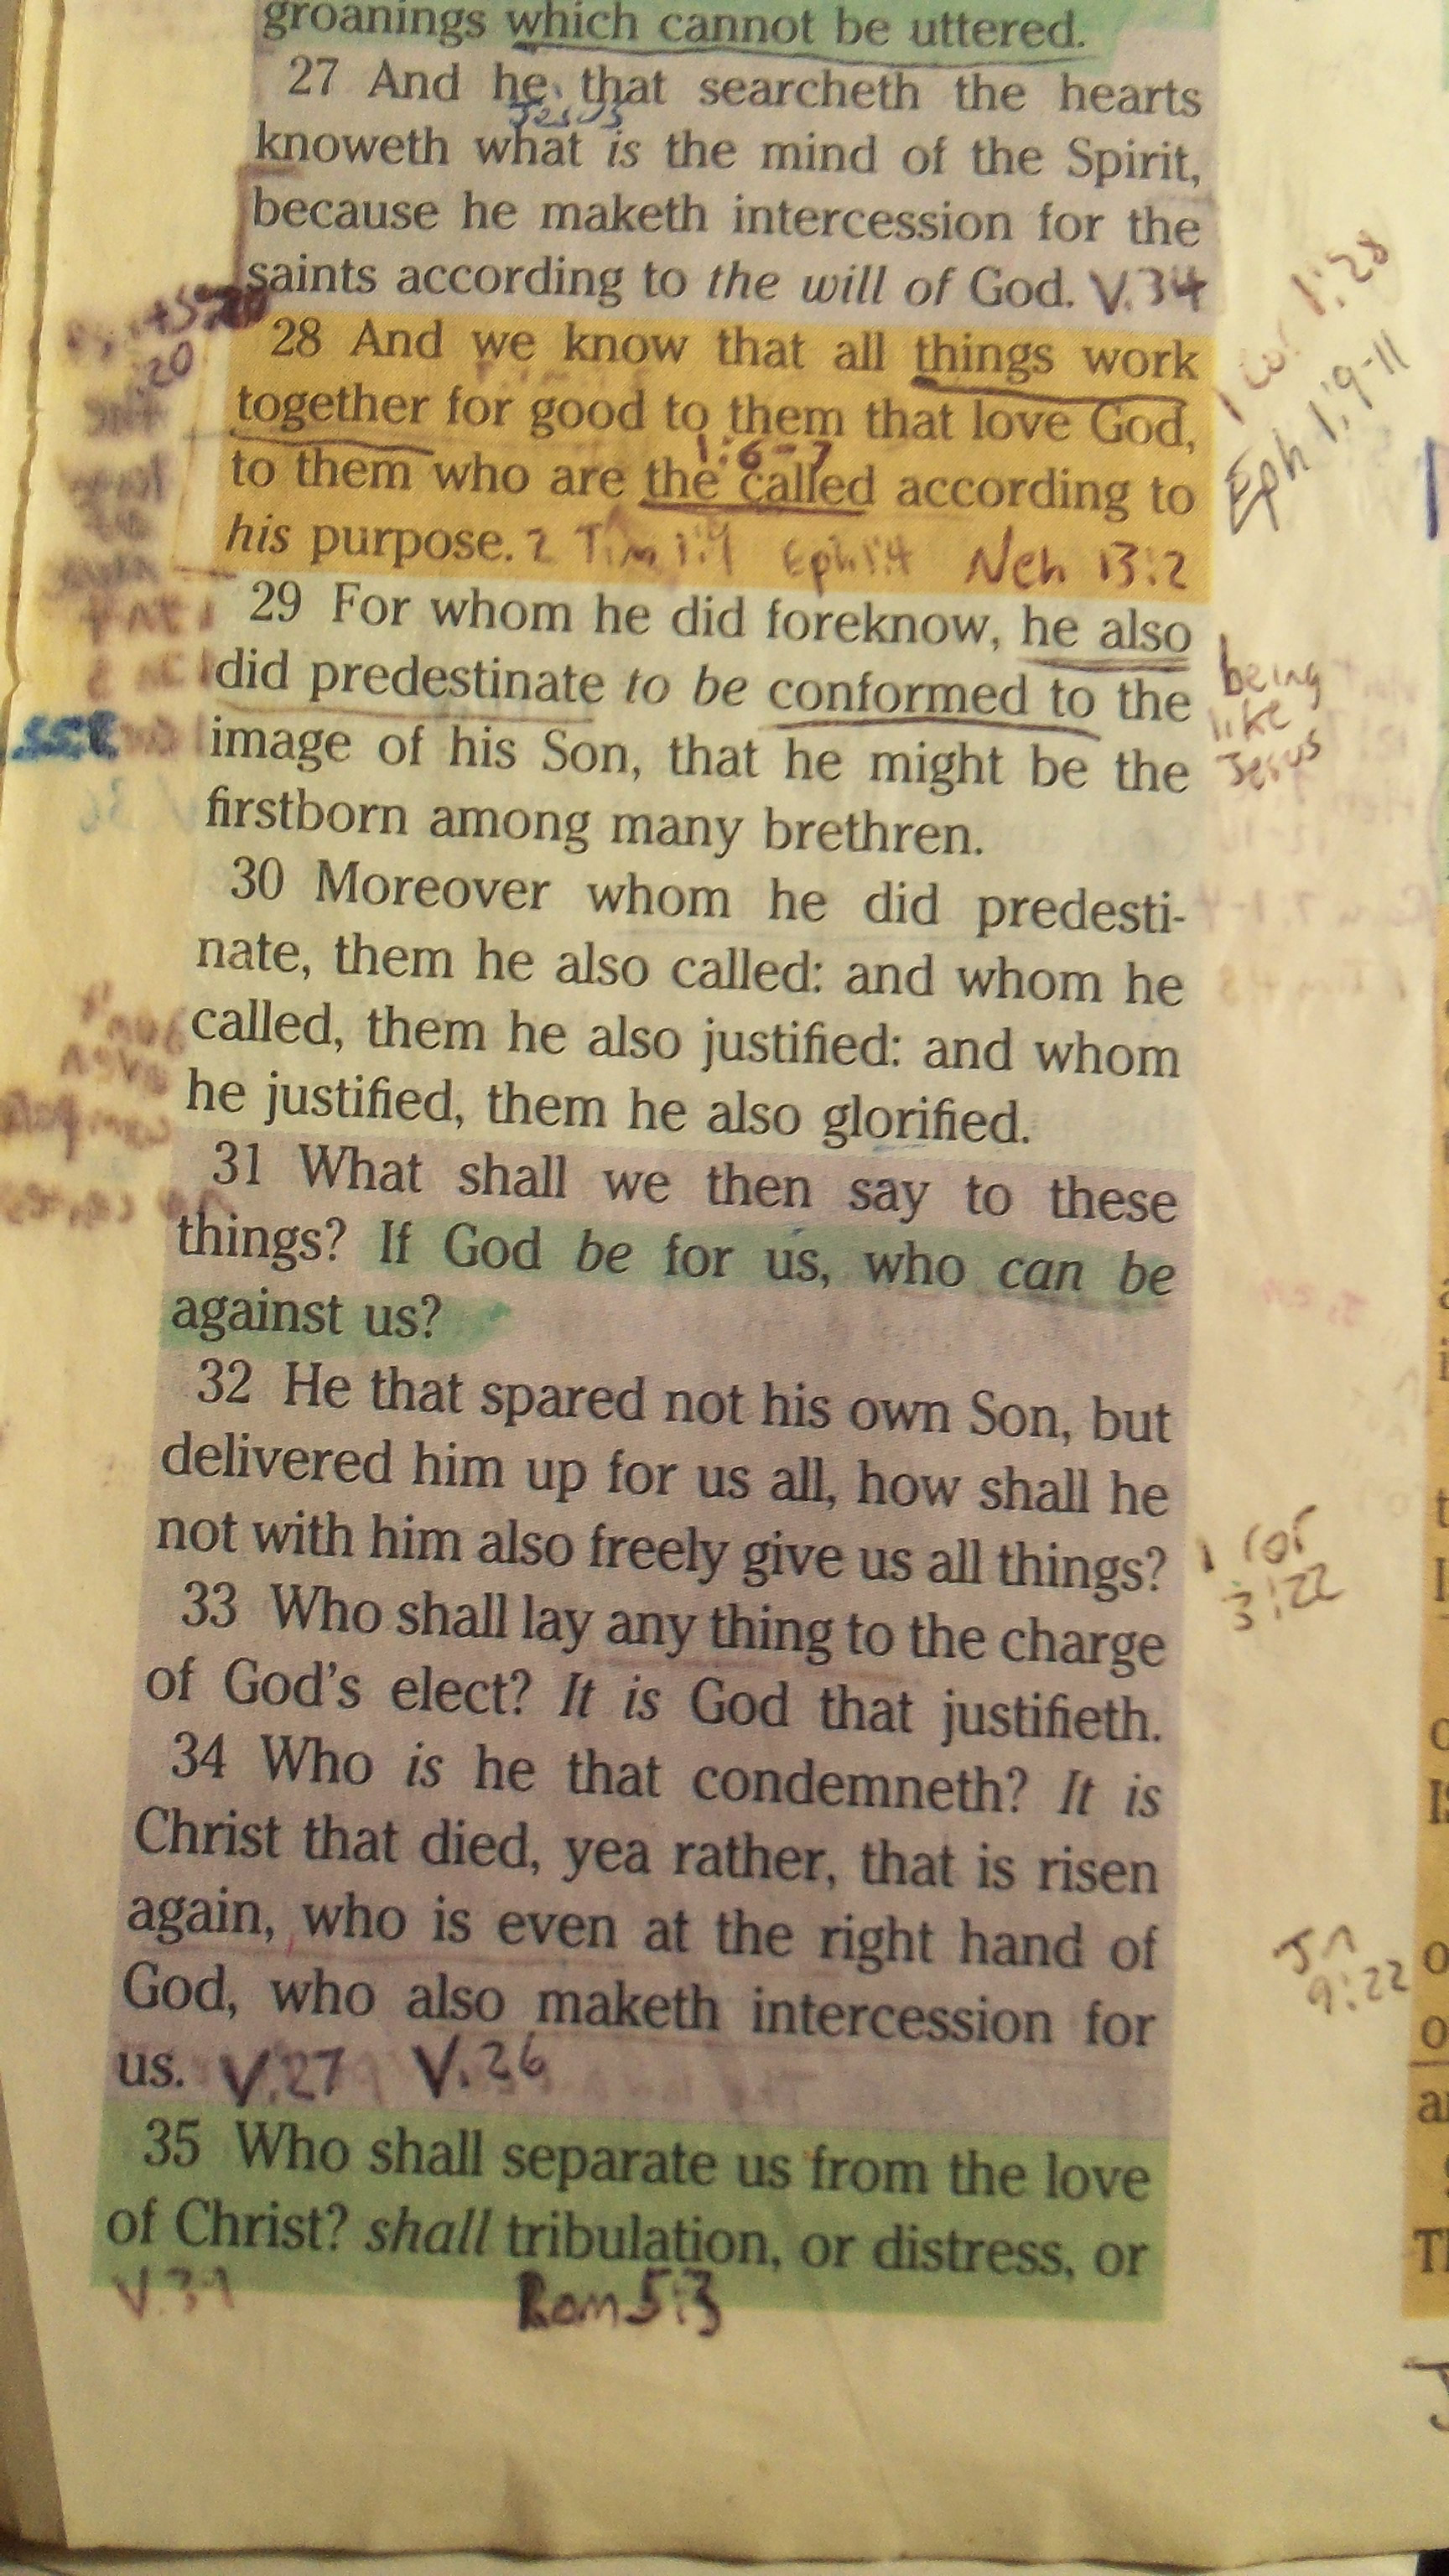 groanings which cannot be uttered.
27 And he that searcheth the hearts
Jesus
knoweth what is the mind of the Spirit,
because he maketh intercession for the
saints according to the will of God. V.34
28 And we know that all things work
together for good to them that love God,
1:6-7
to them who are the called according to
his purpose. 2 Tim 1:9 Eph 1:4 Neh 13:2
1 Cor 1:28
Eph 1:9-11
29 For whom he did foreknow, he also
did predestinate to be conformed to the
image of his Son, that he might be the
firstborn among many brethren.
being
like
Jesus
30 Moreover whom he did predesti-
nate, them he also called: and whom he
called, them he also justified: and whom
he justified, them he also glorified.
don't
even
compare
31 What shall we then say to these
things? If God be for us, who can be
against us?
32 He that spared not his own Son, but
delivered him up for us all, how shall he
not with him also freely give us all things?
1 Cor
3:22
33 Who shall lay any thing to the charge
of God's elect? It is God that justifieth.
34 Who is he that condemneth? It is
Christ that died, yea rather, that is risen
again, who is even at the right hand of
God, who also maketh intercession for
us. V.27 V.26
Jn
9:22
35 Who shall separate us from the love
of Christ? shall tribulation, or distress, or
V.39 Rom 5:3